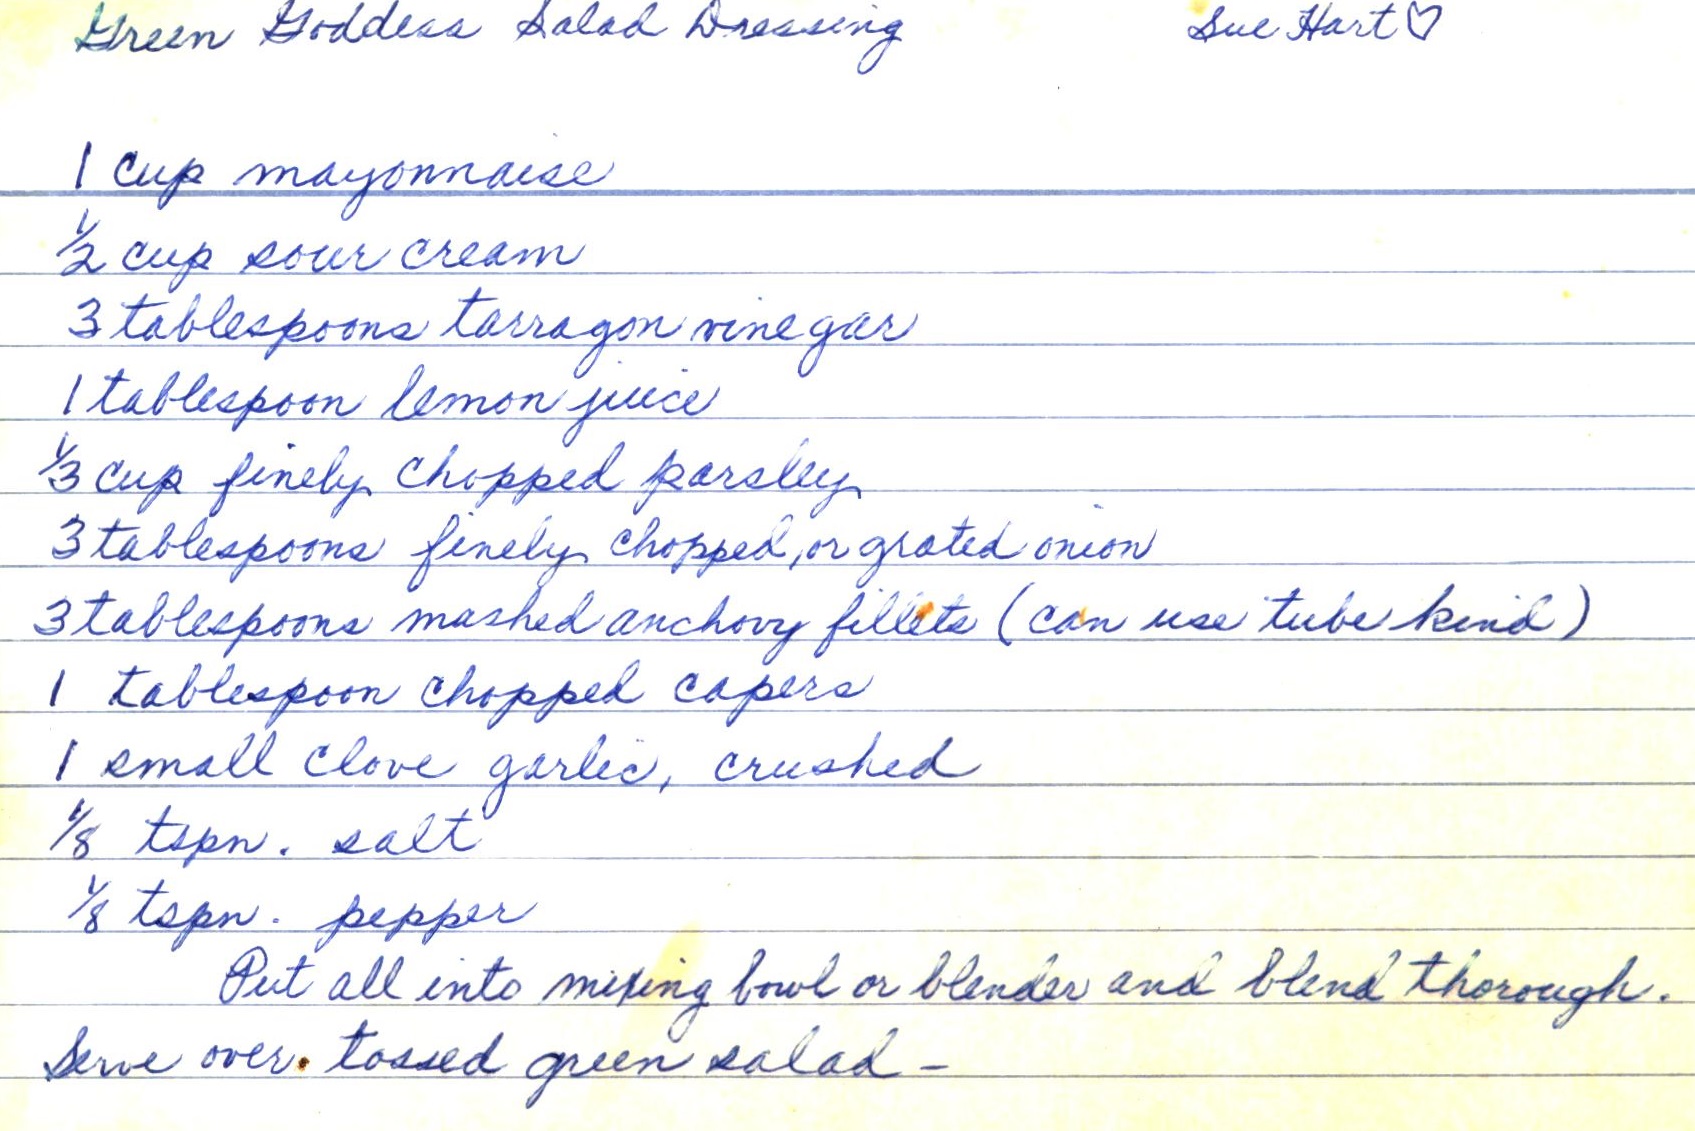 Green Goddess Salad Dressing Sue Hart♡
1 cup mayonnaise
1/2 cup sour cream
3 tablespoons tarragon vinegar
1 tablespoon lemon juice
1/3 cup finely chopped parsley
3 tablespoons finely chopped, or grated onion
3 tablespoons mashed anchovy fillets (can use tube kind)
1 tablespoon chopped capers
1 small clove garlic, crushed
1/8 tspn. salt
1/8 tspn. pepper
Put all into mixing bowl or blender and blend thorough.
Serve over tossed green salad –